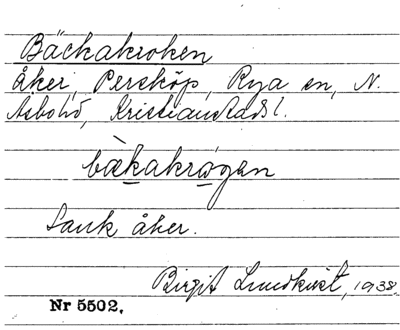 Bäckakroken
Åker, Perskóp, Rya sn, N.
Åsbohd, Kristianstads l.
bæ̀kakrøgen
Sank åker.
Birgit Lundkvist, 1938
Nr 5502.